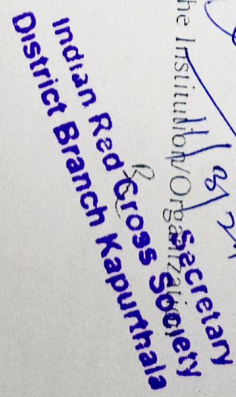 he Institution/Organization
Secretary
Indian Red Cross Society
District Branch Kapurthala